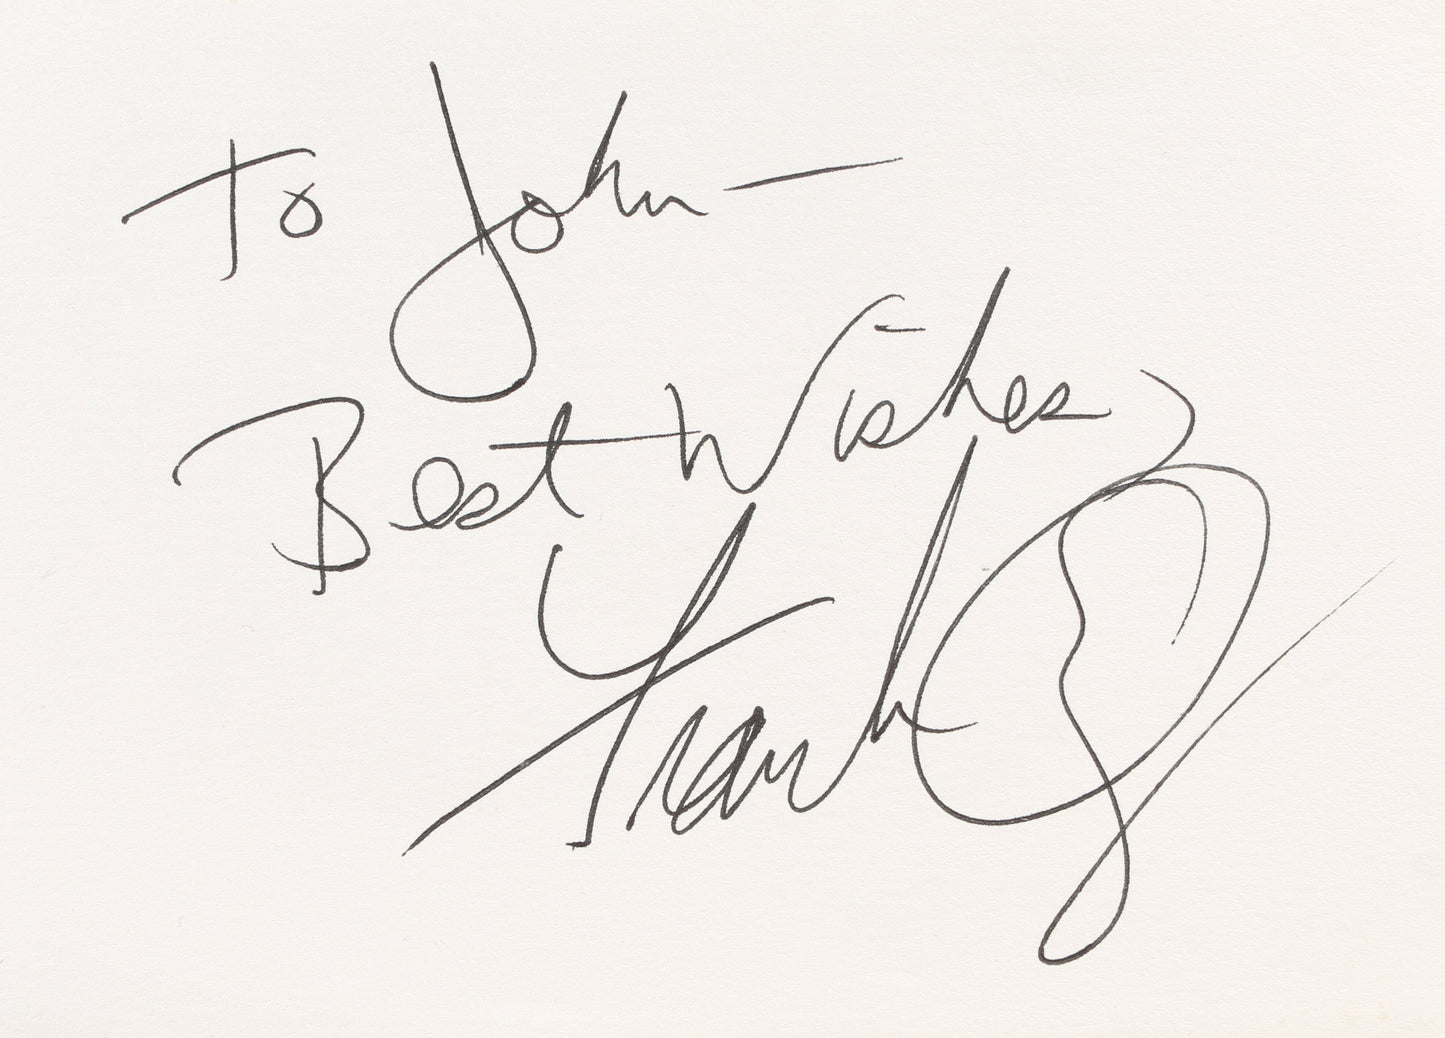 To John —
Best Wishes,
Frank